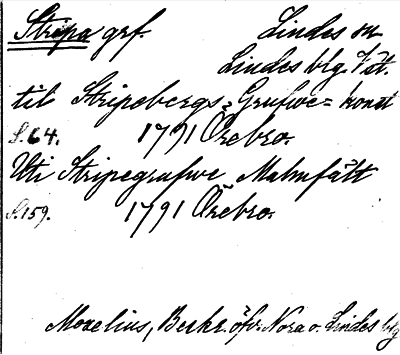 Stripa grf. Lindes sn
Lindes blg. Vst.
til Stripebergs-Grufwe-konst
S.64. 1791 Örebro.
Uti Stripegrufwe Malmfält
S.159. 1791 Örebro.
Moxelius, Beskr. öfv. Nora o. Lindes blg